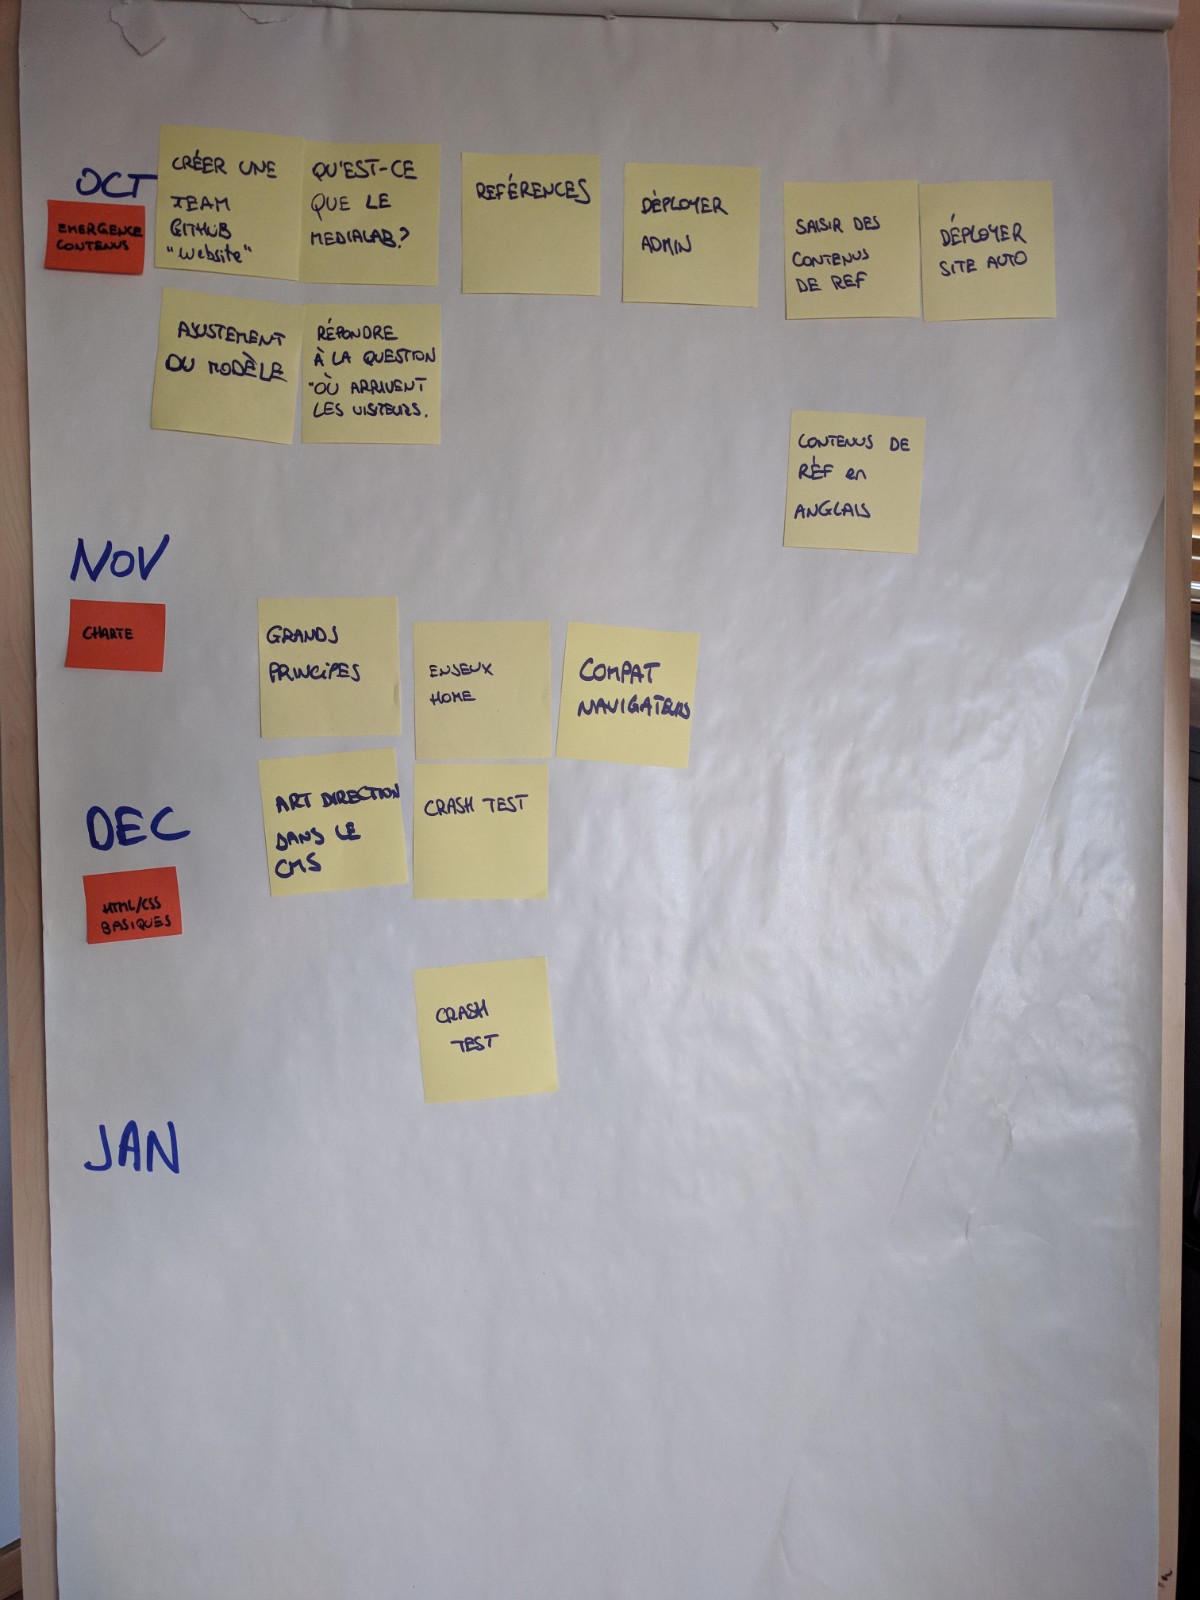 OCT
EMERGENCE
CONTENUS
CRÉER UNE
TEAM
GITHUB
"Website"
QU'EST-CE
QUE LE
MEDIALAB?
REFÉRENCES
DÉPLOYER
ADMIN
SAISIR DES
CONTENUS
DE REF
DÉPLOYER
SITE AUTO
AJUSTEMENT
DU MODÈLE
RÉPONDRE
À LA QUESTION
"OÙ ARRIVENT
LES VISITEURS.
CONTENUS DE
RÉF en
ANGLAIS
NOV
CHARTE
GRANDS
PRINCIPES
ENJEUX
HOME
COMPAT
NAVIGATEURS
DEC
HTML/CSS
BASIQUES
ART DIRECTION
DANS LE
CMS
CRASH TEST
CRASH
TEST
JAN